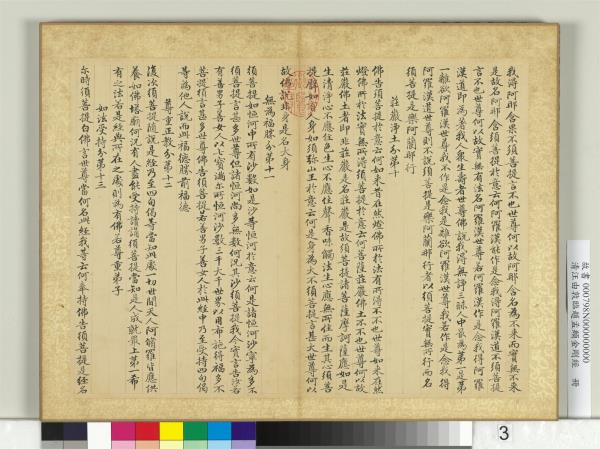 我得阿那含果不須菩提言不也世尊何以故阿那含名為不來而實無不來
是故名阿那含須菩提於意云何阿羅漢能作是念我得阿羅漢道不須菩提
言不也世尊何以故實無有法名阿羅漢世尊若阿羅漢作是念我得阿羅
漢道即為著我人衆生壽者世尊佛說我得無諍三昧人中最為第一是第
一離欲阿羅漢世尊我不作是念我是離欲阿羅漢世尊我若作是念我得
阿羅漢道世尊則不說須菩提是樂阿蘭那行者以須菩提實無所行而名
須菩提是樂阿蘭那行
莊嚴淨土分第十
佛告須菩提於意云何如來昔在然燈佛所於法有所得不不也世尊如來在然
燈佛所於法實無所得須菩提於意云何菩薩莊嚴佛土不不也世尊何以故
莊嚴佛土者即非莊嚴是名莊嚴是故須菩提諸菩薩摩訶薩應如是
生清淨心不應住色生心不應住聲香味觸法生心應無所住而生其心須菩
提譬如有人身如須彌山王於意云何是身為大不須菩提言甚大世尊何以
故佛說非身是名大身
無為福勝分第十一
須菩提如恒河中所有沙數如是沙等恒河於意云何是諸恒河沙寧為多不
須菩提言甚多世尊但諸恒河尚多無數何況其沙須菩提我今實言告汝若
有善男子善女人以七寶滿尔所恒河沙數三千大千世界以用布施得福多不
須菩提言甚多世尊佛告須菩提若善男子善女人於此經中乃至受持四句偈
等為他人說而此福德勝前福德
尊重正教分第十二
復次須菩提隨說是經乃至四句偈等當知此處一切世間天人阿脩羅皆應供
養如佛塔廟何況有人盡能受持讀誦須菩提當知是人成就最上第一希
有之法若是經典所在之處則為有佛若尊重弟子
如法受持分第十三
尔時須菩提白佛言世尊當何名此經我等云何奉持佛告須菩提是經名
故書 000798N000000000
清汪由敦臨趙孟頫金剛經 冊
3